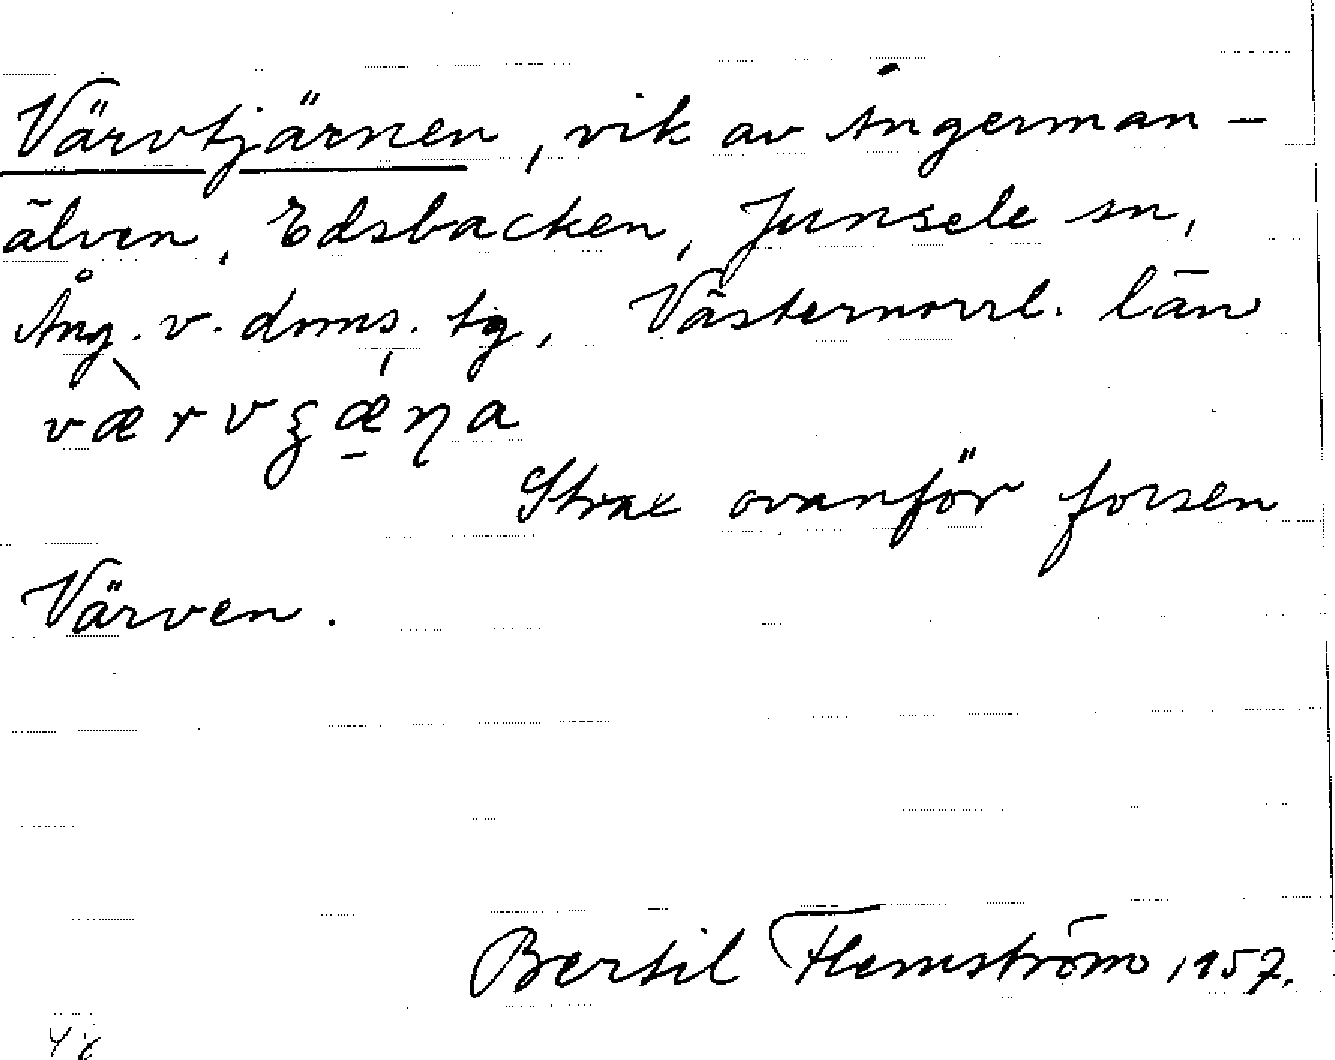 Värvtjärnen, vik av Ångerman-
älven, Edsbacken, Junsele sn,
Ång. v. doms. tg, Västernorrl. län
værvʒæŋa
Strax ovanför forsen
Värven.
Bertil Flemström 1957.